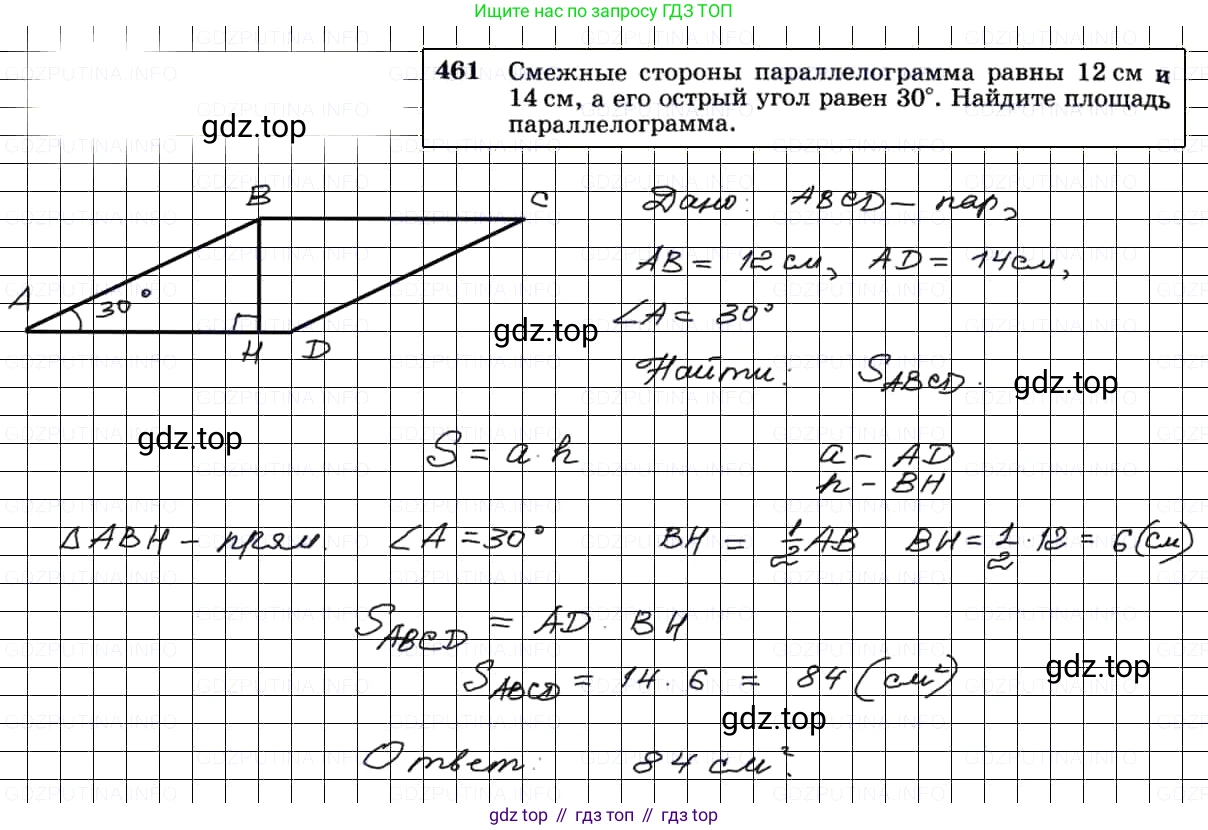 Ищите нас по запросу ГДЗ ТОП
461 Смежные стороны параллелограмма равны 12 см и
14 см, а его острый угол равен 30°. Найдите площадь
параллелограмма.
gdz.top
B C
A 30°
H D
Дано: ABCD – пар,
AB = 12 см, AD = 14 см,
∠A = 30°
gdz.top
Найти: S_ABCD.
gdz.top
gdz.top
S = a · h
a – AD
h – BH
△ABH – прям. ∠A = 30° BH = 1/2 AB BH = 1/2 · 12 = 6 (см)
S_ABCD = AD · BH
S_ABCD = 14 · 6 = 84 (см²)
gdz.top
gdz.top
Ответ: 84 см².
gdz top // гдз топ // гдз top
GDZPUTINA.INFO